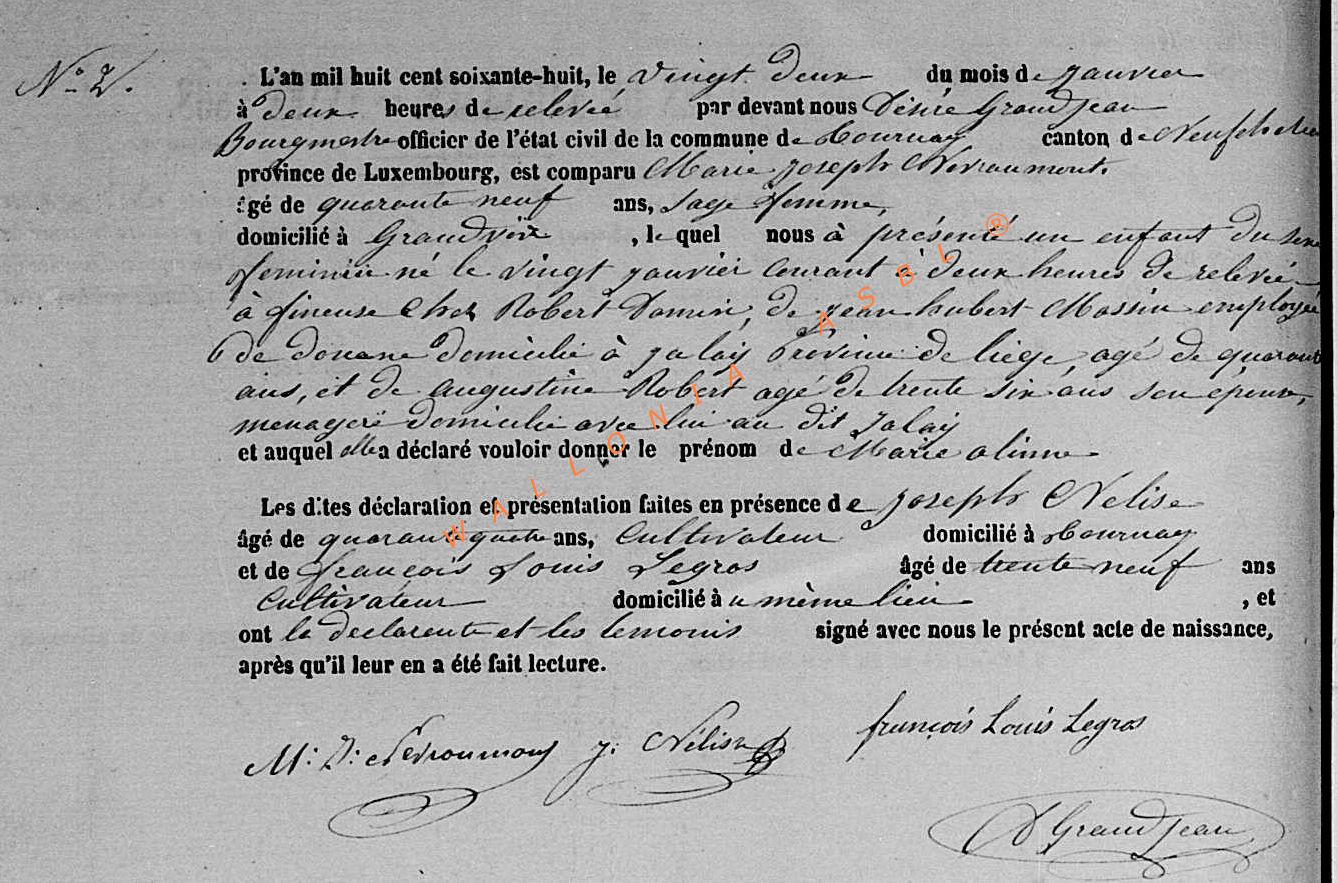 No 2.
L'an mil huit cent soixante-huit, le vingt deux du mois de janvier
à deux heures de relevée par devant nous Désiré Grandjean
Bourgmestre officier de l'état civil de la commune de Tournay canton de Neufchateau
province de Luxembourg, est comparu Marie Joseph Nevraumont.
âgé de quarante neuf ans, sage femme,
domicilié à Grandvoir, le quel nous à présenté un enfant du sexe
feminin né le vingt janvier courant à deux heures de relevée,
à fineuse chez Robert Damin, de jean hubert Massin employé
de douane domicilié à jalay province de liége, agé de quarante
ans, et de augustine Robert agé de trente six ans son épouse,
menagere domicilie avec lui au dit Jalay
et auquel elle a déclaré vouloir donner le prénom de Marie aline
Les dites déclaration et présentation faites en présence de joseph Nelise
âgé de quarante quatre ans, Cultivateur domicilié à Tournay
et de françois Louis Legros âgé de trente neuf ans
Cultivateur domicilié à u même lieu, et
ont la declarente et les temouis signé avec nous le présent acte de naissance,
après qu'il leur en a été fait lecture.
M: J: Nevroumont j. Nélise françois Louis Legros
D Grandjean
WALLONIA ASBL ®